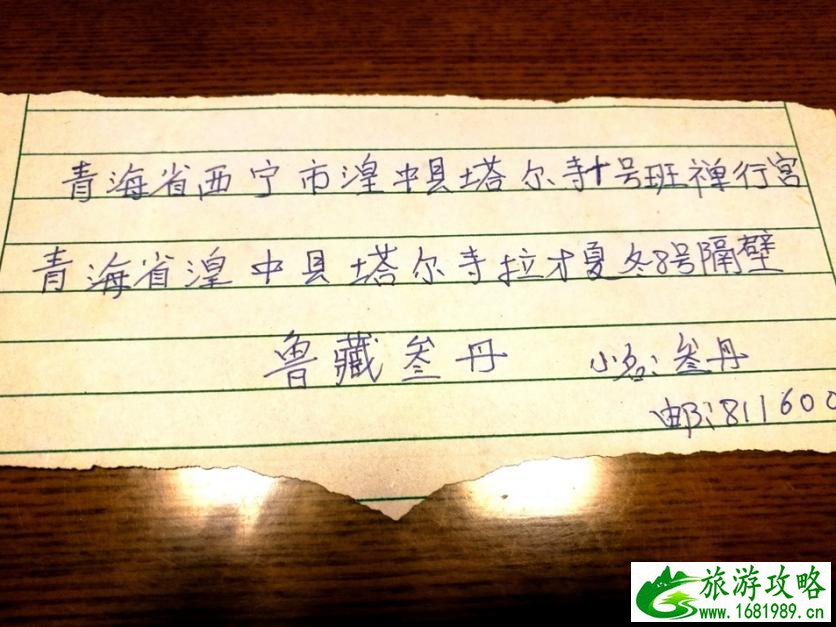 青海省西宁市湟中县塔尔寺十号班禅行宫
青海省湟中县塔尔寺拉才夏冬8号隔壁
鲁藏叁丹 小名:叁丹
邮:811600
旅游攻略
www.1681989.cn